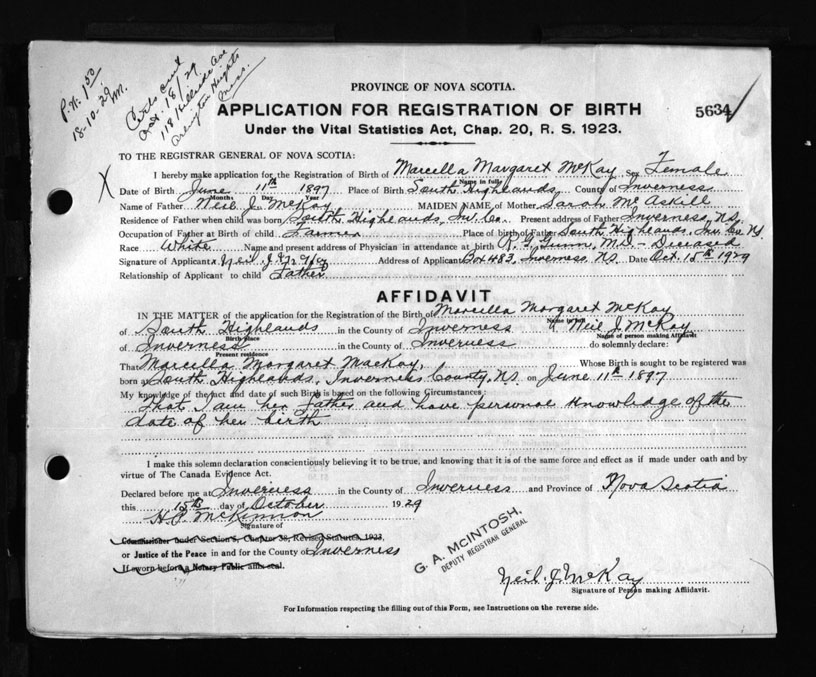 P.N. 1.50
18-10-29
Certs sent
Oct. 18/29
118 Hillside Ave
Arlington Heights
Mass.
PROVINCE OF NOVA SCOTIA.
APPLICATION FOR REGISTRATION OF BIRTH
5634
Under the Vital Statistics Act, Chap. 20, R. S. 1923.
TO THE REGISTRAR GENERAL OF NOVA SCOTIA:
X
I hereby make application for the Registration of Birth of Marcella Margaret McKay Sex Female
Name in full
Date of Birth June 11th 1897 Place of Birth South Highlands County of Inverness
Months Day Year
Name of Father Neil J. McKay MAIDEN NAME of Mother Sarah McAskill
Residence of Father when child was born South Highlands, Inv. Co. Present address of Father Inverness, N.S.
Occupation of Father at Birth of child Farmer Place of birth of Father South Highlands, Inv. Co. N.S.
Race White Name and present address of Physician in attendance at birth R. G. Gunn, M.D. - Deceased
Signature of Applicant x Neil. J. McKay Address of Applicant Box 483, Inverness, N.S. Date Oct. 15th 1929
Relationship of Applicant to child Father
AFFIDAVIT
IN THE MATTER of the application for the Registration of the Birth of Marcella Margaret McKay
Name in full
of South Highlands in the County of Inverness I, Neil J. McKay
Birth place Name of person making Affidavit
of Inverness in the County of Inverness do solemnly declare:
Present residence
That Marcella Margaret MacKay, Whose Birth is sought to be registered was
born at South Highlands, Inverness County, N.S. on June 11th 1897
My knowledge of the fact and date of such Birth is based on the following Circumstances:
That I am her father and have personal knowledge of the
date of her birth
I make this solemn declaration conscientiously believing it to be true, and knowing that it is of the same force and effect as if made under oath and by
virtue of The Canada Evidence Act.
Declared before me at Inverness in the County of Inverness and Province of Nova Scotia
this 15th day of October 1929
H. D. McKinnon
Signature of
Commissioner under Section 8, Chapter 38, Revised Statutes, 1923,
or Justice of the Peace in and for the County of Inverness
If sworn before a Notary Public affix seal.
G. A. McINTOSH,
DEPUTY REGISTRAR GENERAL
Neil. J. McKay
Signature of Person making Affidavit.
For Information respecting the filling out of this Form, see Instructions on the reverse side.